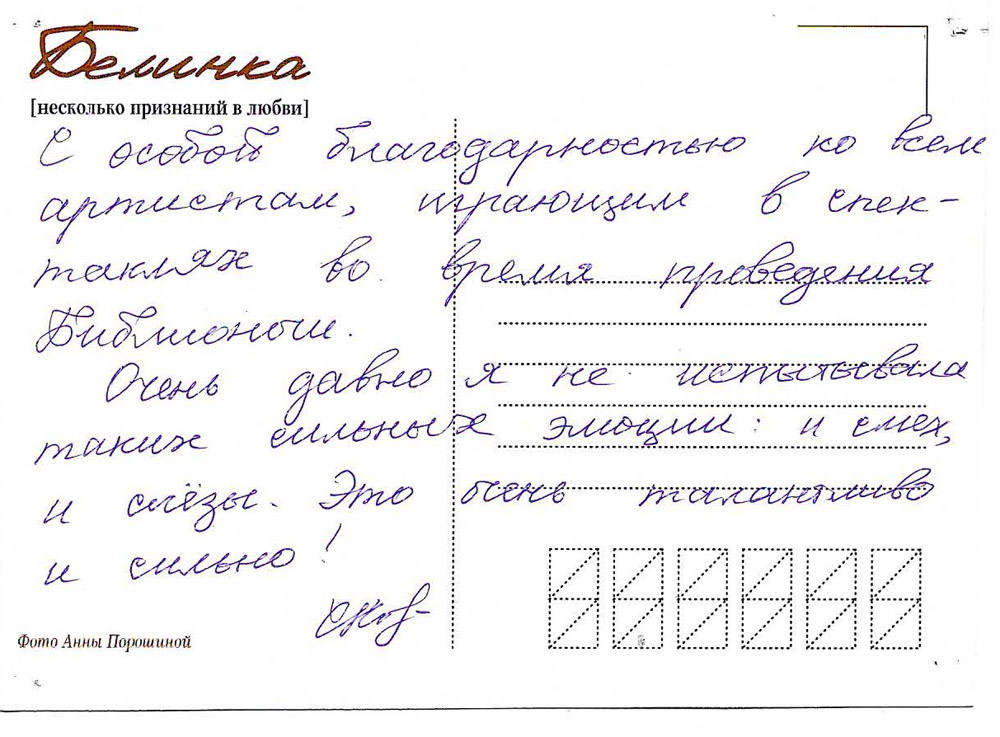 Белинка
[несколько признаний в любви]
С особой благодарностью ко всем
артистам, играющим в спек-
таклях во время проведения
Библионочи.
Очень давно я не испытывала
таких сильных эмоций: и смех,
и слёзы. Это очень талантливо
и сильно!
Фото Анны Порошиной